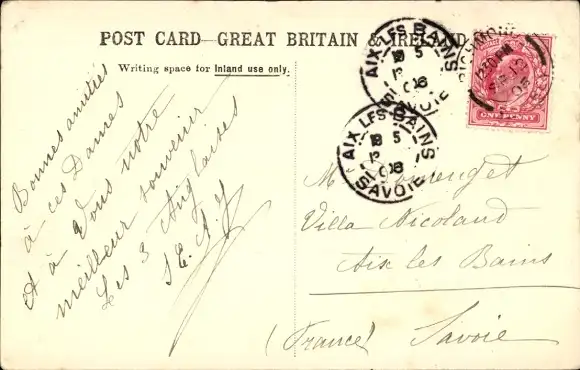 POST CARD—GREAT BRITAIN & IRELAND
Writing space for Inland use only.
Bonnes amitiés
à ces Dames
et à Vous notre
meilleur souvenir
Les 3 Anglaises
AIX-LES-BAINS
5
08
SAVOIE
AIX-LES-BAINS
5
08
SAVOIE
12.30 PM
ONE PENNY
M
Villa Nicoland
Aix les Bains
(France) Savoie